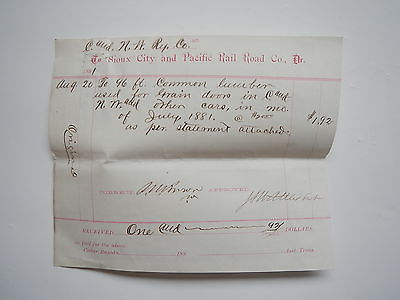 C and N. W Ry. Co.
To Sioux City and Pacific Rail Road Co., Dr.
Aug. 20 To 96 ft. Common lumber
used for Grain doors in C and
N. W and other cars, in mo.
of July 1881. @ $1.92
as per statement attached.
Original
CORRECT APPROVED
RECEIVED One and 92/ DOLLARS.
in full for the above
Cedar Rapids, 188